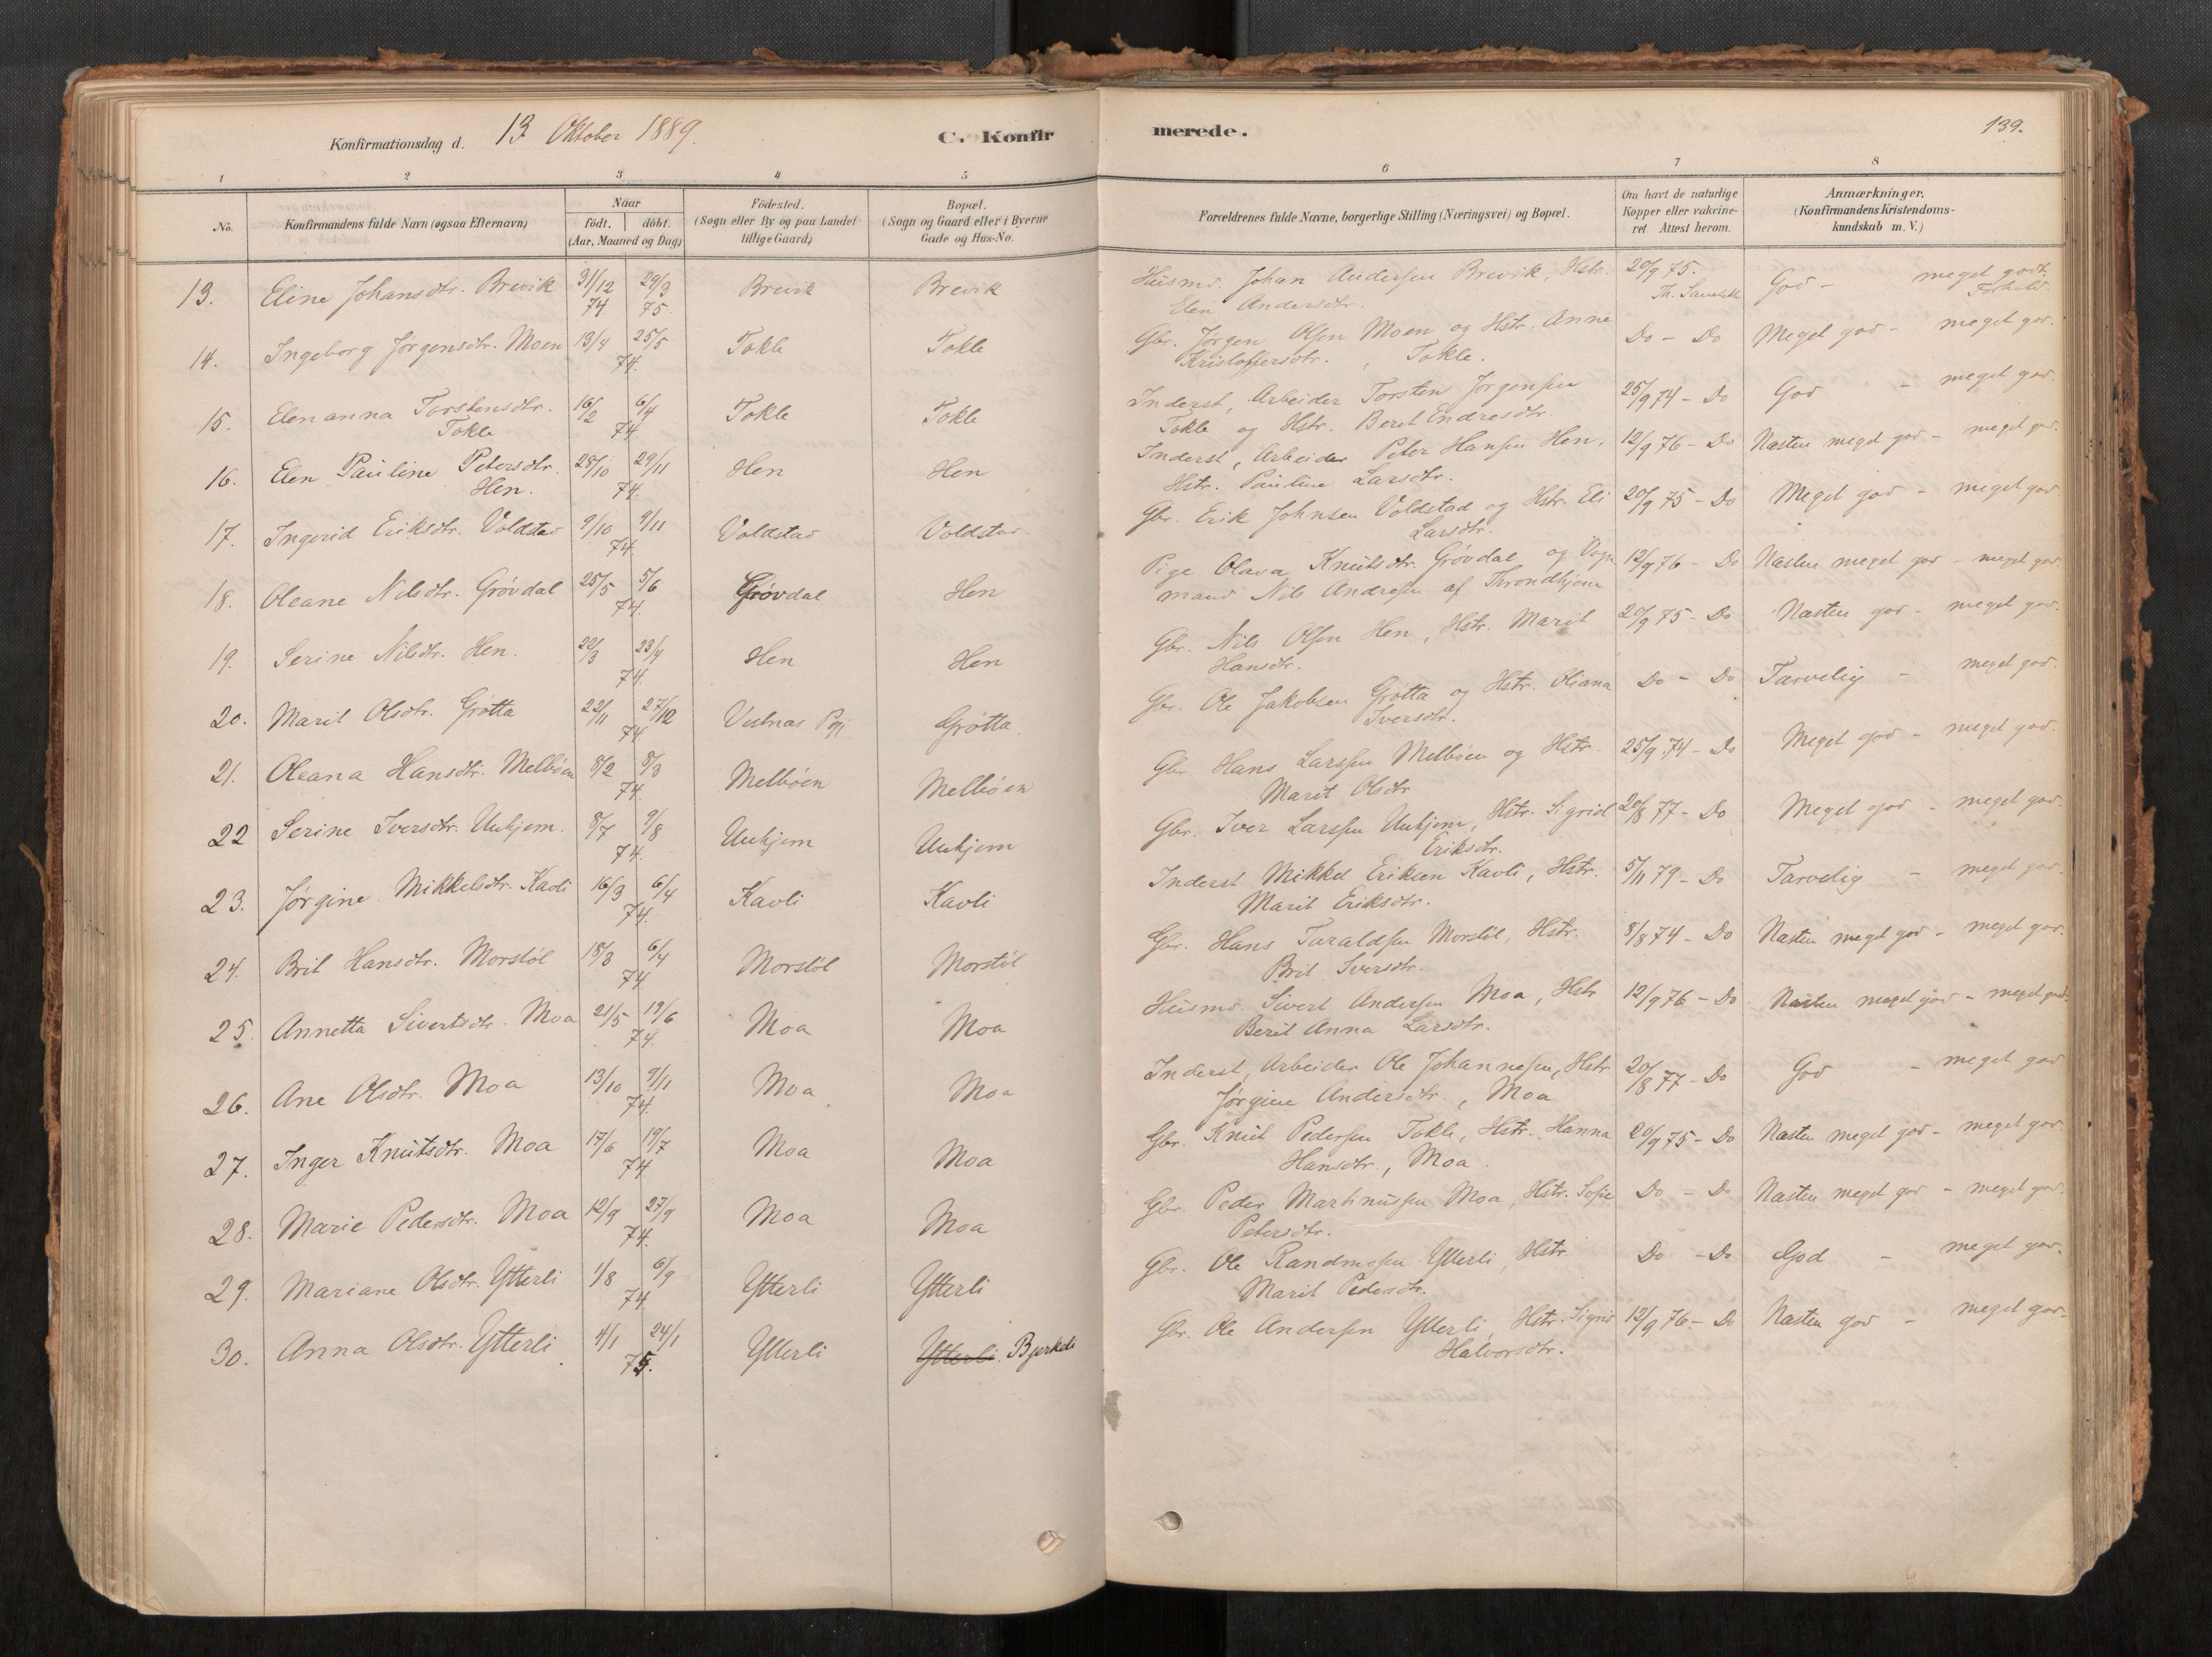 Konfirmationsdag d. 13 Oktober 1889.
C. Konfirmerede.
139.
1 2 3 4 5 6 7 8
No.
Konfirmandens fulde Navn (ogsaa Efternavn)
Naar
födt. | döbt.
(Aar, Maaned og Dag)
Födested.
(Sogn eller By og paa Landet
tillige Gaard)
Bopæl.
(Sogn og Gaard eller i Byerne
Gade og Hus-No.
Forældrenes fulde Navne, borgerlige Stilling (Næringsvei) og Bopæl.
Om havt de naturlige
Kopper eller vakcine-
ret. Attest herom.
Anmærkninger.
(Konfirmandens Kristendoms-
kundskab m. V.)
13. Eline Johansdtr. Brevik 31/12 74 29/3 75 Brevik Brevik Husmd. Johan Andersen Brevik, Hstr. 20/9 75. God - meget godt
Elen Andersdtr. Th. Forhold.
14. Ingeborg Jørgensdtr. Moen 13/4 25/5 74. Tokle Tokle Gbr. Jørgen Olsen Moen og Hstr. Anne Do - Do Meget god - meget god.
Kristoffersdtr., Tokle.
15. Elenanna Torstensdtr. 16/2 6/4 74. Tokle Tokle Inderst, Arbeider Torsten Jørgensen 25/9 74 - Do God - meget god.
Tokle Tokle og Hstr. Beret Endresdtr.
16. Elen Pauline Petersdtr. 28/10 29/11 74. Hen Hen Inderst, Arbeider Peter Hansen Hen, 12/9 76 - Do Næsten meget god - meget god.
Hen. Hstr. Pauline Larsdtr.
17. Ingerid Eriksdtr. Voldstad 9/10 9/11 74. Voldstad Voldstad Gbr. Erik Johnsen Voldstad og Hstr. Eli 20/9 75 - Do Meget god - meget god
Larsdtr.
18. Oleane Nilsdtr. Grövdal 25/5 5/6 74. Grövdal Hen Pige Olava Knutsdtr. Grövdal og Vogn 12/9 76 - Do Næsten meget god - meget god.
mand Nils Andresen af Throndhjem
19. Serine Nilsdtr. Hen. 22/3 23/4 74. Hen Hen Gbr. Nils Olsen Hen, Hstr. Marit 20/9 75 - Do Næsten god - meget god.
Hansdtr.
20. Marit Olsdtr. Grøtta 22/11 27/12 74. Vestnæs Pgj Grøtta Gbr. Ole Jakobsen Grøtta og Hstr. Oliana Do - Do Tarvelig - meget god.
Iversdtr.
21. Oleana Hansdtr. Melbøen 8/2 8/3 74. Melbøen Melbøen Gbr. Hans Larssen Melbøen og Hstr. 25/9 74 - Do Meget god - meget god.
Marit Olsdtr
22 Serine Iversdtr. Unhjem. 8/7 9/8 74. Unhjem Unhjem Gbr. Iver Larssen Unhjem, Hstr. Sigrid 20/8 77 - Do Meget god - meget god.
Eriksdtr.
23. Jørgine Mikkelsdtr. Kavli 16/3 6/4 74. Kavli Kavli Inderst Mikkel Eriksen Kavli, Hstr. 5/11 79 - Do Tarvelig - meget god.
Marit Eriksdtr.
24. Brit Hansdtr. Morstøl 18/3 6/4 74. Morstøl Morstøl Gbr. Hans Taraldsen Morstøl, Hstr. 8/8 74 - Do Næsten meget god - meget god.
Brit Iversdtr.
25. Annetta Sivertsdtr. Moa 21/5 19/6 74. Moa Moa Husmd. Sivert Andersen Moa, Hstr 12/9 76 - Do Næsten meget god - meget god.
Berit Anna Larsdtr.
26. Ane Olsdtr. Moa 13/10 9/11 74. Moa Moa Inderst, Arbeider Ole Johannesen, Hstr 20/8 77 - Do God - meget god
Jørgine Andersdtr., Moa
27. Inger Knutsdtr. Moa 17/6 19/7 74. Moa Moa Gbr. Knut Pedersen Tokle, Hstr. Hanna 20/9 75 - Do Næsten meget god - meget god.
Hansdtr, Moa.
28. Marie Pedersdtr. Moa 12/9 27/9 74. Moa Moa Gbr. Peder Martinussen Moa, Hstr. Sofie Do - Do Næsten meget god - meget god.
Petersdtr.
29. Mariane Olsdtr. Ytterli 1/8 6/9 74. Ytterli Ytterli Gbr. Ole Ytterli, Hstr. Do - Do God - meget god.
Marit Pedersdtr.
30. Anna Olsdtr. Ytterli 4/1 24/1 75. Ytterli Ytterli. Bjerkeli Gbr. Ole Andersen Ytterli, Hstr. Sigrid 12/9 76 - Do Næsten god - meget god.
Halvorsdtr.